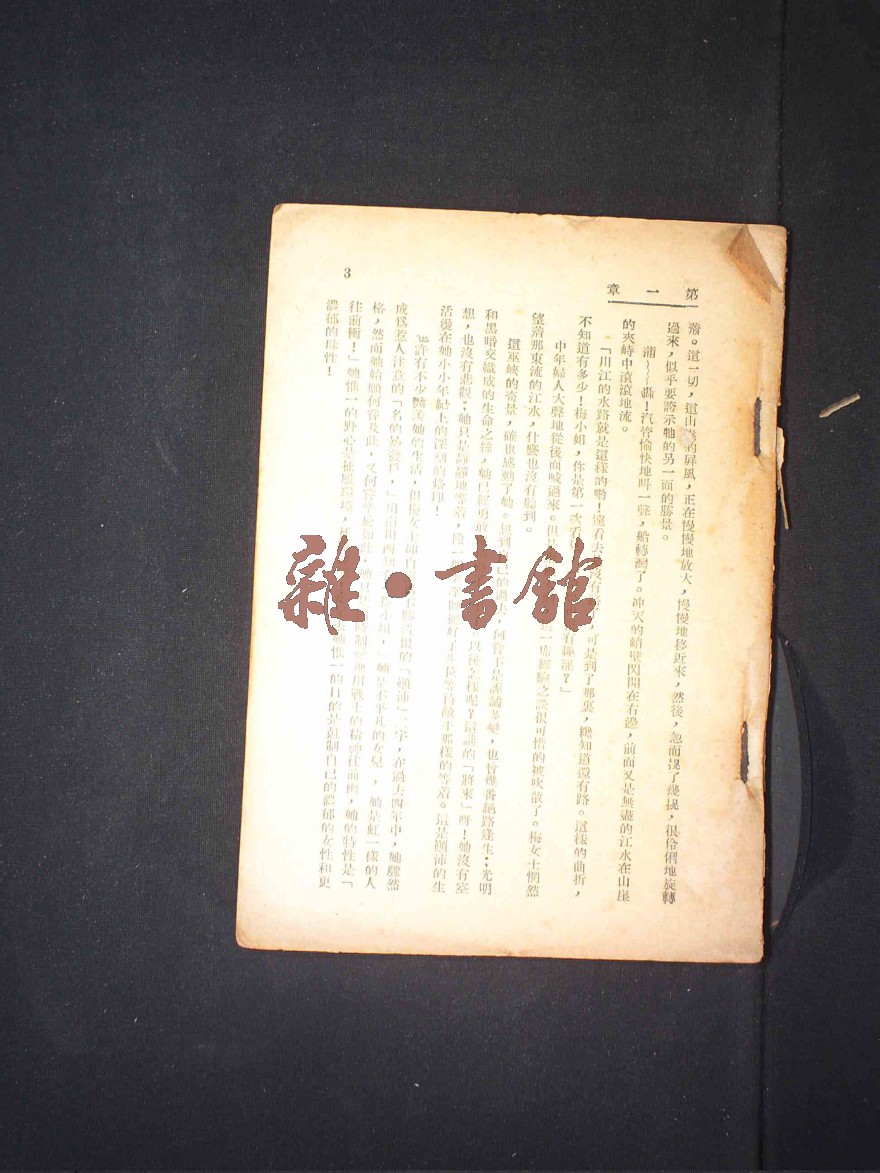 第一章
潽。這一切，這山的屏風，正在慢慢地放大，慢慢地移近來，然後，忽而晃了幾晃，很伶俐地旋轉
過來，似乎要誇示牠的另一面的勝景。
蒲~~~轟！汽管愉快地叫一聲，船轉灣了。冲天的峭壁閃開在右邊，前面又是無盡的江水在山崖
的夾峙中滾滾地流。
「川江的水路就是這樣的喲！遠看去沒有，可是到了那裏，纔知道還有路。這樣的曲折，
不知道有多少！梅小姐，你是第一次看有趣罷？」
中年婦人大聲地從後面喊過來。但這一席經驗之談很可惜的被吹散了。梅女士惘然
望着那東流的江水，什麼也沒有聽到。
這巫峽的奇景，確也感動了她。想到自己的何嘗不是詭譎多變，也曾幾番絕路逢生；光明
和黑暗交織成的生命之絲，她已經勇敢以後怎樣呢？這謎的「將來」呀！她沒有空
想，也沒有悲觀；她只是靜靜地等着，像一好了步段等待敵手那樣的等着。這是顛沛的生
活刻在她小小年紀上的深刻的烙印！
也許有不少豔羨她的生活，但梅女士卻自的「顛沛」二字，在過去四年中，她驟然
成爲惹人注意的「名的暴發戶，」川南川西梅小姐，她是不平凡的女兒，她是虹一樣的人
格，然而她始願何嘗及此，又何嘗樂於如此，她只地用戰士的精神往前衝，她的特性是「
往前衝！」她惟一的野心是征服環境，惟一的目的是克制自己的濃郁的女性和更
濃郁的母性！
3
雜·書館